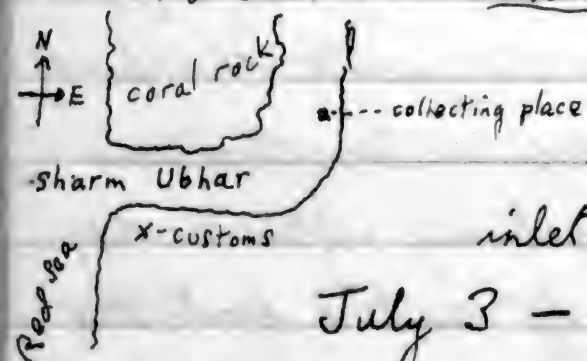 N
E
coral rock
collecting place
sharm Ubhar
x-customs
inlet
Red Sea
July 3 -